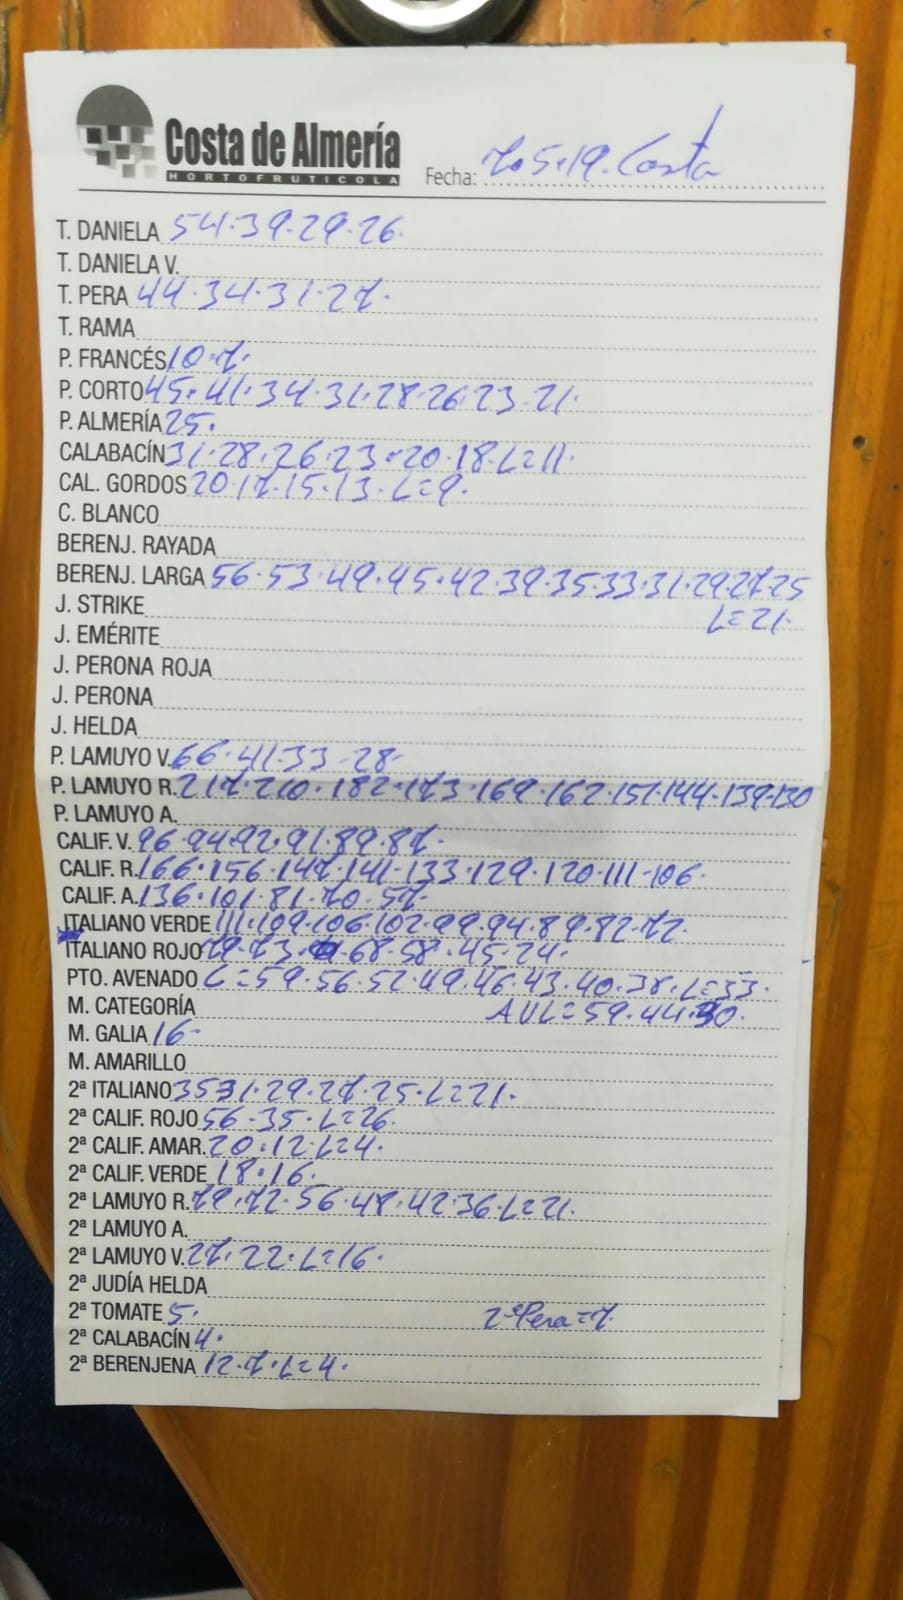 Costa de Almería
HORTOFRUTICOLA
Fecha: 7.5.19. Costa
T. DANIELA 54.39.29.26.
T. DANIELA V.
T. PERA 44.34.31.27.
T. RAMA
P. FRANCÉS 10.7.
P. CORTO 45.41.34.31.28.26.23.21.
P. ALMERÍA 25.
CALABACÍN 31.28.26.23.20.18.L=11.
CAL. GORDOS 20.17.15.13.L=9.
C. BLANCO
BERENJ. RAYADA
BERENJ. LARGA 56.53.49.45.42.39.35.33.31.29.27.25
L=21.
J. STRIKE
J. EMÉRITE
J. PERONA ROJA
J. PERONA
J. HELDA
P. LAMUYO V. 66.41.33.28.
P. LAMUYO R. 217.210.182.173.169.162.151.144.139.130
P. LAMUYO A.
CALIF. V. 96.94.92.91.89.87.
CALIF. R. 166.156.147.141.133.129.120.111.106.
CALIF. A. 136.101.81.70.57.
ITALIANO VERDE 111.109.106.102.99.94.89.82.72.
ITALIANO ROJO 79.73.68.58.45.24.
PTO. AVENADO L=59.56.52.49.46.43.40.38.L=33.
M. CATEGORÍA AVL=59.44.30.
M. GALIA 16.
M. AMARILLO
2ª ITALIANO 35.31.29.27.25.L=21.
2ª CALIF. ROJO 56.35.L=26.
2ª CALIF. AMAR. 20.12.L=4.
2ª CALIF. VERDE 18.16.
2ª LAMUYO R. 79.72.56.48.42.36.L=21.
2ª LAMUYO A.
2ª LAMUYO V. 27.22.L=16.
2ª JUDÍA HELDA
2ª TOMATE 5. 2ª Pera=7.
2ª CALABACÍN 4.
2ª BERENJENA 12.7.L=4.